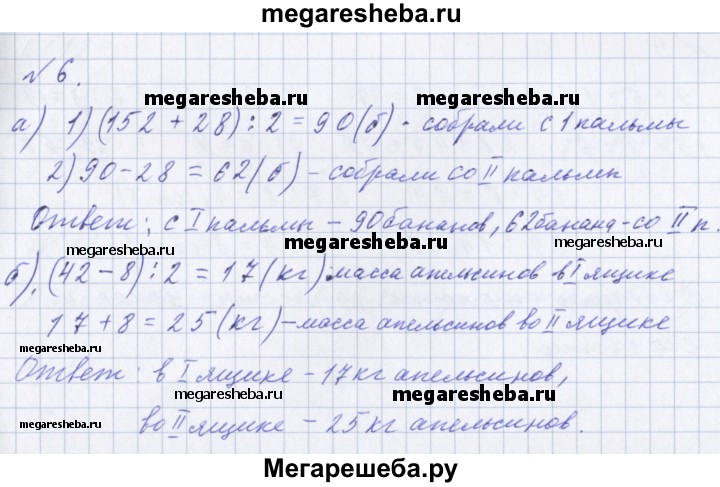 megaresheba.ru
№ 6.
megaresheba.ru megaresheba.ru
а) 1) (152 + 28) : 2 = 90 (б) - собрали с 1 пальмы
2) 90 - 28 = 62 (б) - собрали со II пальмы
Ответ: с I пальмы - 90 бананов, 62 банана - со II п.
megaresheba.ru megaresheba.ru megaresheba.ru
б). (42 - 8) : 2 = 17 (кг) - масса апельсинов в I ящике
17 + 8 = 25 (кг) - масса апельсинов во II ящике
megaresheba.ru
Ответ: в I ящике - 17 кг апельсинов,
megaresheba.ru megaresheba.ru
megaresheba.ru во II ящике - 25 кг апельсинов.
megaresheba.ru megaresheba.ru
Мегарешеба.ру